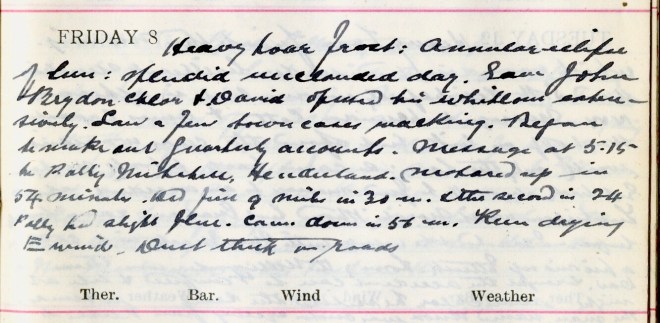 FRIDAY 8 Heavy hoar frost: Annular eclipse
of Sun: splendid unclouded day. Gave John
Brydon chlor & David opened his whitlow exten-
sively. Saw a few town cases walking. Began
to make out Quarterly accounts. Message at 5.15
to Polly Mitchell, Henderland. motored up in
54 minutes. did first 9 miles in 30 m. & the second in 24
Polly had slight flu. came down in 56 m. Keen drying
E winds. Dust thick on roads
Ther. Bar. Wind Weather